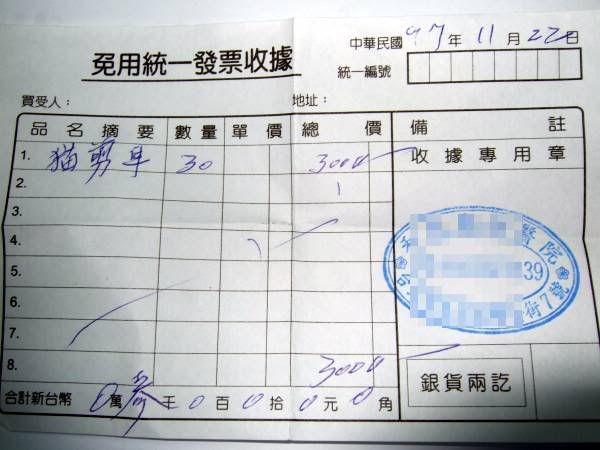 免用統一發票收據
中華民國97年11月22日
統一編號
買受人： 地址：
品名摘要 數量 單價 總價 備註
1. 猫剪耳 30 3000
收據專用章
2.
3.
4.
5.
6.
7.
8. 3000
醫院
39
街7
銀貨兩訖
合計新台幣 0萬參千0百0拾0元0角